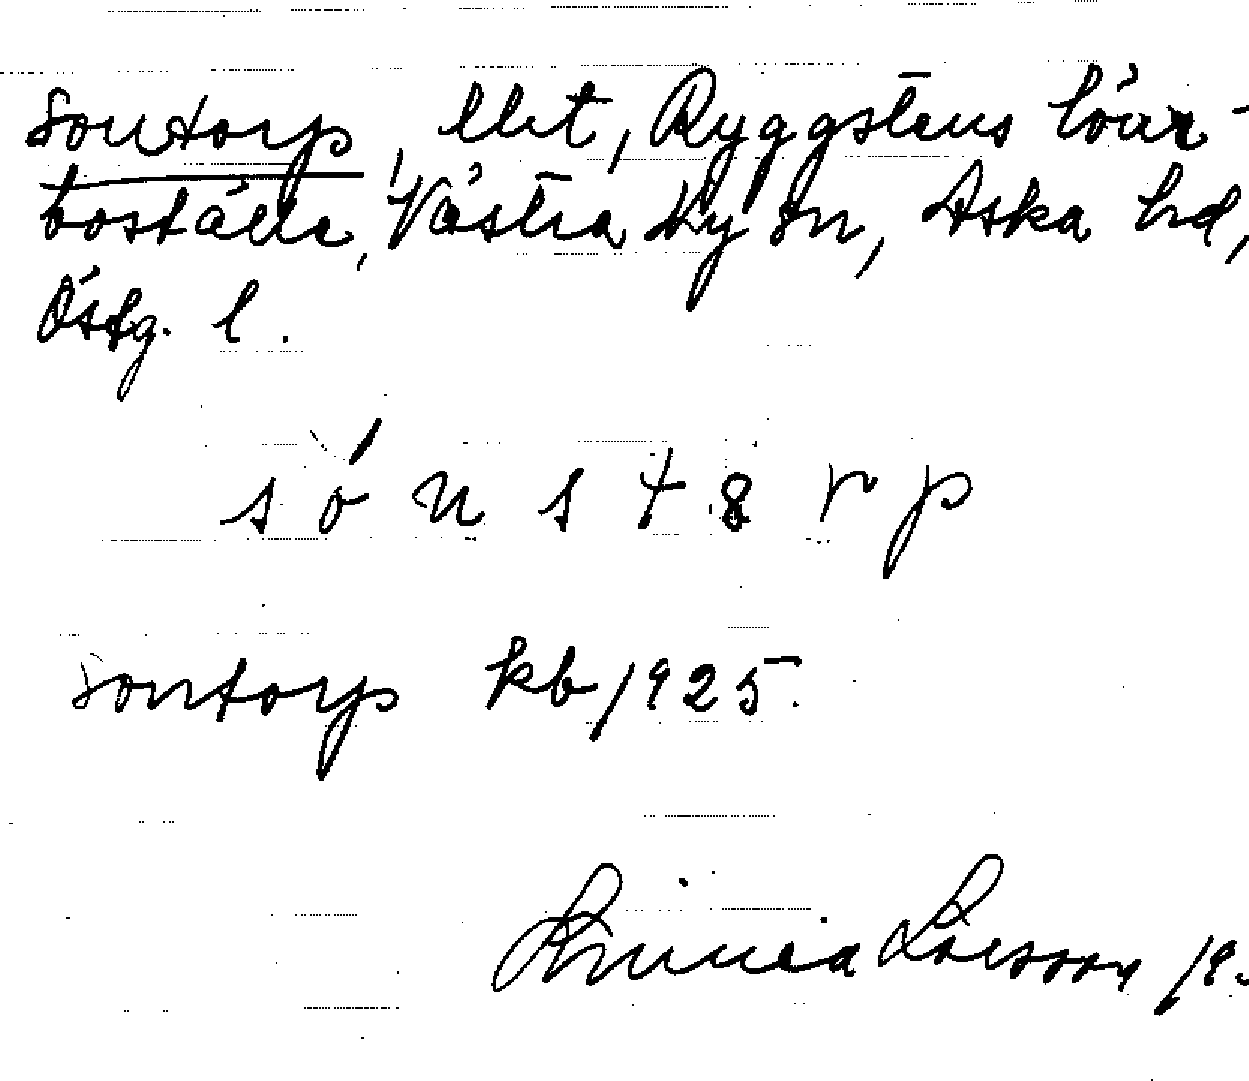 Sontorp, lht, Ryggstens lövar-
boställe, Västra Ny sn, Aska hd,
Östg. l.
s ó n s t 8 r p
Sontorp kb/1925.
Linnéa Larsson /19